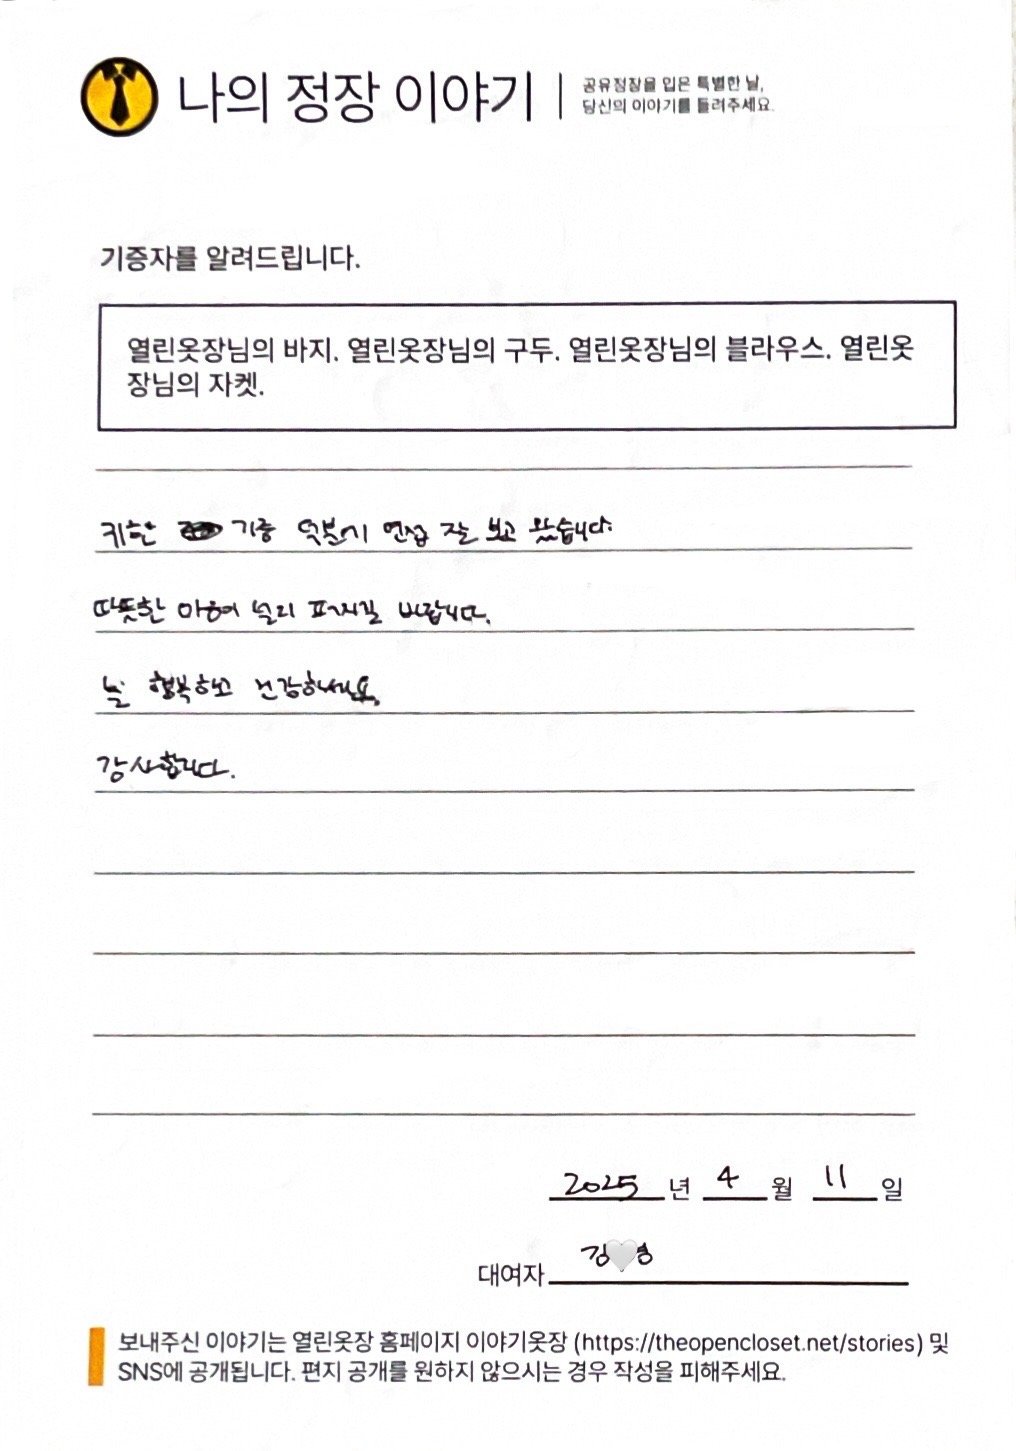 나의 정장 이야기
공유정장을 입은 특별한 날,
당신의 이야기를 들려주세요.
기증자를 알려드립니다.
열린옷장님의 바지. 열린옷장님의 구두. 열린옷장님의 블라우스. 열린옷
장님의 자켓.
귀한 기증 덕분에 면접 잘 보고 왔습니다.
따뜻한 마음이 널리 퍼지길 바랍니다.
늘 행복하고 건강하세요.
감사합니다.
2025 년 4 월 11 일
대여자 김 영
보내주신 이야기는 열린옷장 홈페이지 이야기옷장 (https://theopencloset.net/stories) 및
SNS에 공개됩니다. 편지 공개를 원하지 않으시는 경우 작성을 피해주세요.